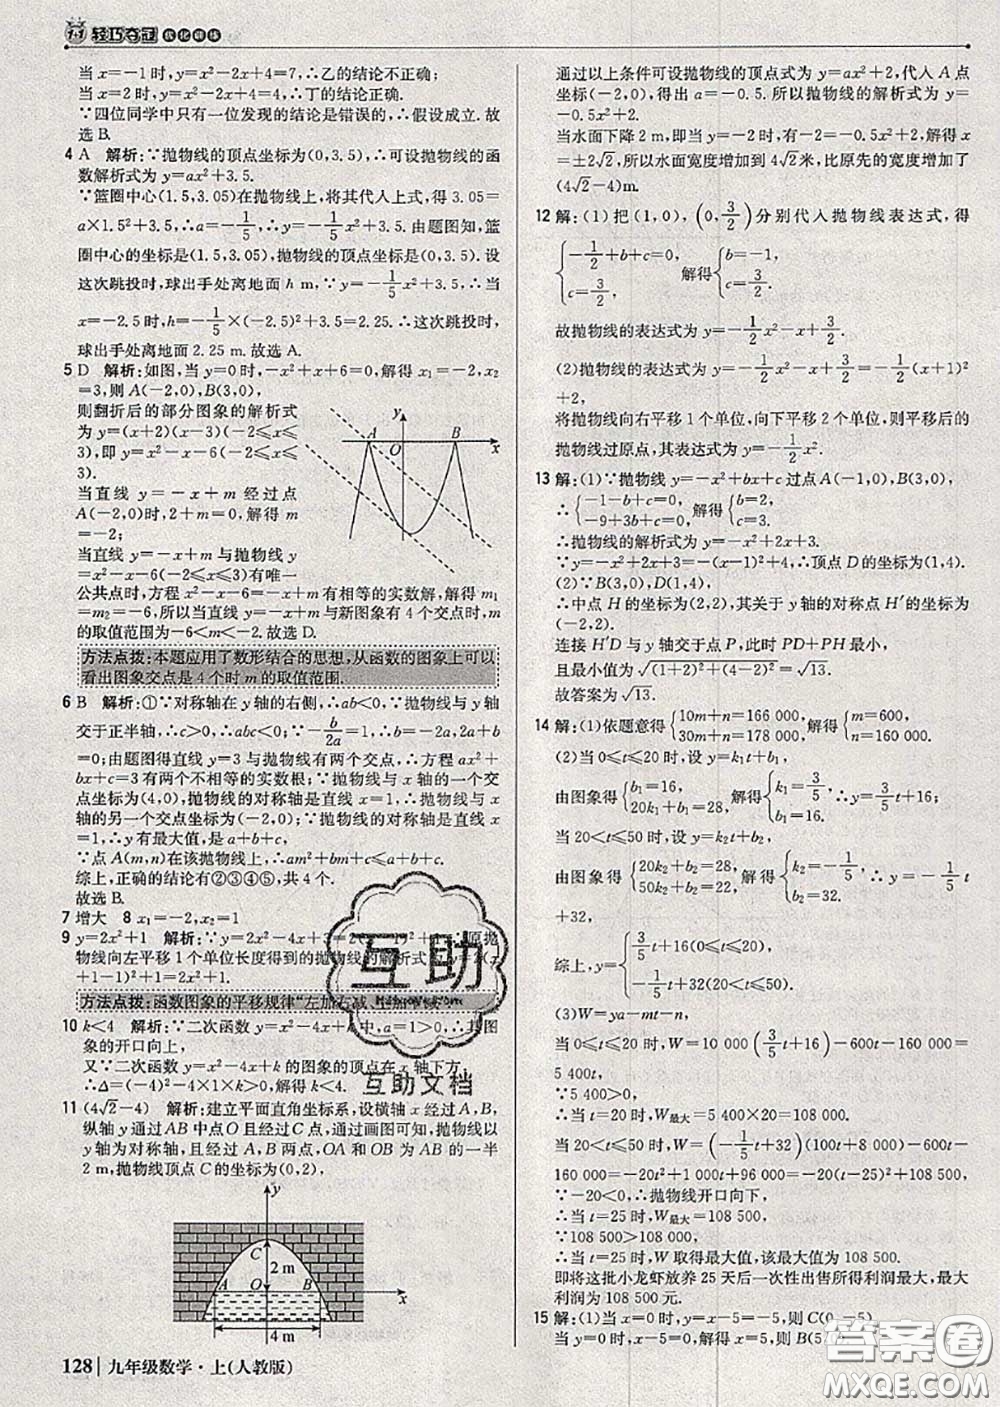 1+1 轻巧夺冠 优化训练
当 x=-1 时,y=x²-2x+4=7,∴乙的结论不正确;
当 x=2 时,y=x²-2x+4=4,∴丁的结论正确.
∵四位同学中只有一位发现的结论是错误的,∴假设成立. 故
选 B.
4 A 解析:∵抛物线的顶点坐标为(0,3.5),∴可设抛物线的函
数解析式为 y=ax²+3.5.
∵篮圈中心(1.5,3.05)在抛物线上,将其代人上式,得 3.05=
a×1.5²+3.5,∴a=-1/5,∴y=-1/5x²+3.5. 由题图知,篮
圈中心的坐标是(1.5,3.05),抛物线的顶点是(0,3.5). 设
这次跳投时,球出手处离地面 h m,∵y=-1/5x²+3.5,∴当
x=-2.5 时,h=-1/5×(-2.5)²+3.5=2.25.∴这次跳投时,
球出手处离地面 2.25 m. 故选 A.
5 D 解析:如图,当 y=0 时,-x²+x+6=0,解得 x₁=-2,x₂
=3,则 A(-2,0),B(3,0),
则翻折后的部分图象的解析式
为 y=(x+2)(x-3)(-2⩽x⩽
3),即 y=x²-x-6(-2⩽x⩽
3),
当直线 y=-x+m 经过点
A(-2,0)时,2+m=0,解得 m
=-2;
当直线 y=-x+m 与抛物线 y
=x²-x-6(-2⩽x⩽3)有唯一
公共点时,方程 x²-x-6=-x+m 有相等的实数解,解得 m₁
=m₂=-6,所以当直线 y=-x+m 与新图象有 4 个交点时,m
的取值范围为-6<m<-2.故选 D.
y
A
O
B
x
方法点拨:本题应用了数形结合的思想,从函数的图象上可以
看出图象交点是 4 个时 m 的取值范围.
6 B 解析:①∵对称轴在 y 轴的右侧,∴ab<0,∵抛物线与 y 轴
交于正半轴,∴c>0,∴abc<0;∵-b/2a=1,∴b=-2a,∴2a+b
=0;由题图得直线 y=3 与抛物线有两个交点,∴方程 ax²+bx
+c=3 有两个不相等的实数根;∵抛物线与 x 轴的一个交
点坐标为(4,0),抛物线的对称轴是直线 x=1,∴抛物线与 x
轴的另一个交点坐标为(-2,0);∵抛物线的对称轴是直线 x
=1,∴y 有最大值,是 a+b+c,
∵点 A(m,n)在该抛物线上,∴am²+bm+c⩽a+b+c.
综上,正确的结论有②③④⑤,共 4 个.
故选 B.
7 增大 8 x₁=-2,x₂=1
9 y=2x²+1 解析:∵y=2x²-4x+3=2(x-1)²+1,∴原抛
物线向左平移 1 个单位长度得到的抛物线的解析式为 y=2(x
+1-1)²+1=2x²+1.
方法点拨:函数图象的平移规律“左加右减、上加下减”.
10 k<4 解析:∵二次函数 y=x²-4x+k 中,a=1>0,∴其图
象的开口向上,
又∵二次函数 y=x²-4x+k 的图象的顶点在 x 轴下方,
∴Δ=(-4)²-4×1×k>0,解得 k<4.
11 (4√2-4) 解析:建立平面直角坐标系,设横轴 x 经过 A,B,
纵轴 y 通过 AB 中点 O 且经过 C 点,通过画图可知,抛物线以
y 轴为对称轴,且经过 A,B 两点,OA 和 OB 为 AB 的一半
2 m,抛物线顶点 C 的坐标为(0,2),
y
C
2 m
A
O
B
x
4 m
128 九年级数学·上(人教版)
通过以上条件可设抛物线的顶点式为 y=ax²+2,代人 A 点
坐标(-2,0),得出 a=-0.5. 所以抛物线的解析式为 y=
-0.5x²+2.
当水面下降 2 m,即当 y=-2 时,-2=-0.5x²+2,解得 x=
±2√2,所以水面宽度增加到 4√2米,比原先的宽度增加了
(4√2-4)m.
12 解:(1)把(1,0),(0,3/2)分别代人抛物线表达式,得
{-1/2+b+c=0, c=3/2, 解得{b=-1, c=3/2,
故抛物线的表达式为 y=-1/2x²-x+3/2.
(2)抛物线的表达式为 y=-1/2x²-x+3/2=-1/2(x+1)²
+2,
将抛物线向右平移 1 个单位,向下平移 2 个单位,则平移后的
抛物线过原点,其表达式为 y=-1/2x².
13 解:(1)∵抛物线 y=-x²+bx+c 过点 A(-1,0),B(3,0),
∴{-1-b+c=0, -9+3b+c=0, 解得{b=2, c=3.
∴抛物线的解析式为 y=-x²+2x+3.
∵y=-x²+2x+3=-(x-1)²+4,∴顶点 D 的坐标为(1,4).
(2)∵B(3,0),D(1,4),
∴中点 H 的坐标为(2,2),其关于 y 轴的对称点 H′的坐标为
(-2,2).
连接 H′D 与 y 轴交于点 P,此时 PD+PH 最小,
且最小值为 √((1+2)²+(4-2)²)=√13.
故答案为 √13.
14 解:(1)依题意得{10m+n=166 000, 30m+n=178 000, 解得{m=600, n=160 000.
(2)当 0⩽t⩽20 时,设 y=k₁t+b₁,
由图象得{b₁=16, 20k₁+b₁=28, 解得{k₁=3/5, b₁=16. ∴y=3/5t+16;
当 20<t⩽50 时,设 y=k₂t+b₂,
由图象得{20k₂+b₂=28, 50k₂+b₂=22, 解得{k₂=-1/5, b₂=32. ∴y=-1/5t
+32,
综上,y={3/5t+16(0⩽t⩽20), -1/5t+32(20<t⩽50).
(3)W=ya-mt-n,
当 0⩽t⩽20 时,W=10 000(3/5t+16)-600t-160 000=
5 400t.
∵5 400>0,∴当 t=20 时,W最大=5 400×20=108 000.
当 20<t⩽50 时,W=(-1/5t+32)(100t+8 000)-600t-
160 000=-20t²+1 000t+96 000=-20(t-25)²+108 500,
∵-20<0,∴抛物线开口向下,
∴当 t=25 时,W最大=108 500,
∵108 500>108 000,
∴当 t=25 时,W 取得最大值,该最大值为 108 500.
即将这批小龙虾放养 25 天后一次性出售所得利润最大,最大
利润为 108 500 元.
15 解:(1)当 x=0 时,y=x-5=-5,则 C(0,-5),
当 y=0 时,x-5=0,解得 x=5,
互助
互助文档
答案圈
MXQE.COM